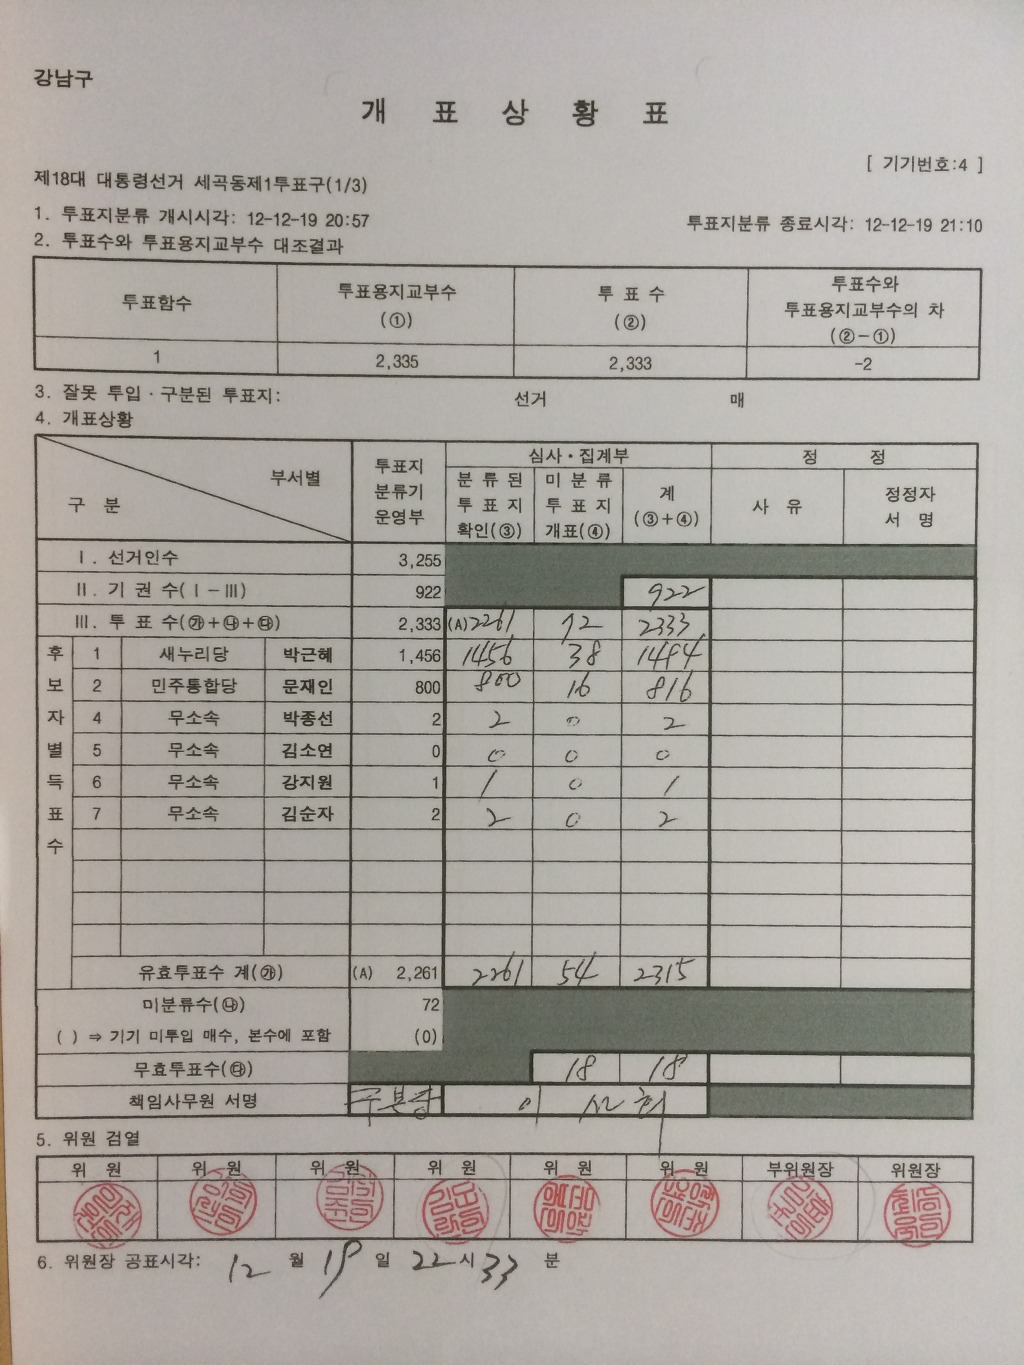 강남구
개 표 상 황 표
[ 기기번호:4 ]
제18대 대통령선거 세곡동제1투표구(1/3)
1. 투표지분류 개시시각: 12-12-19 20:57 투표지분류 종료시각: 12-12-19 21:10
2. 투표수와 투표용지교부수 대조결과
투표함수 투표용지교부수 (①) 투 표 수 (②) 투표수와 투표용지교부수의 차 (②-①)
1 2,335 2,333 -2
3. 잘못 투입·구분된 투표지: 선거 매
4. 개표상황
구 분 부서별 투표지 분류기 운영부 심사·집계부 정 정
분 류 된 투 표 지 확인(③) 미 분 류 투 표 지 개표(④) 계 (③+④) 사 유 정정자 서 명
Ⅰ. 선거인수 3,255
Ⅱ. 기 권 수(Ⅰ-Ⅲ) 922 922
Ⅲ. 투 표 수(㉮+㉯+㉰) 2,333 (A) 2261 72 2333
후보자별득표수
1 새누리당 박근혜 1,456 1456 38 1494
2 민주통합당 문재인 800 800 16 816
4 무소속 박종선 2 2 0 2
5 무소속 김소연 0 0 0 0
6 무소속 강지원 1 1 0 1
7 무소속 김순자 2 2 0 2
유효투표수 계(㉮) (A) 2,261 2261 54 2315
미분류수(㉯) 72
( ) ⇒ 기기 미투입 매수, 본수에 포함 (0)
무효투표수(㉰) 18 18
책임사무원 서명
5. 위원 검열
위 원 위 원 위 원 위 원 위 원 위 원 부위원장 위원장
6. 위원장 공표시각: 12 월 19 일 22 시 33 분